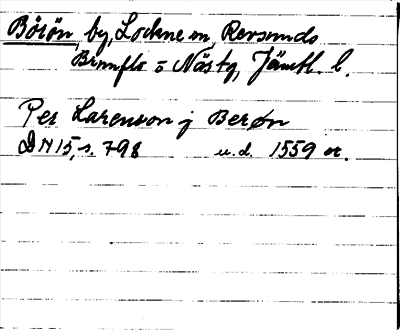 Börön, by, Lockne sn, Revsunds
Brunflo o Näs tg, Jämtl. l.
Per Larenson j Berøn
DN 15, s. 798 u.d. 1559 or.